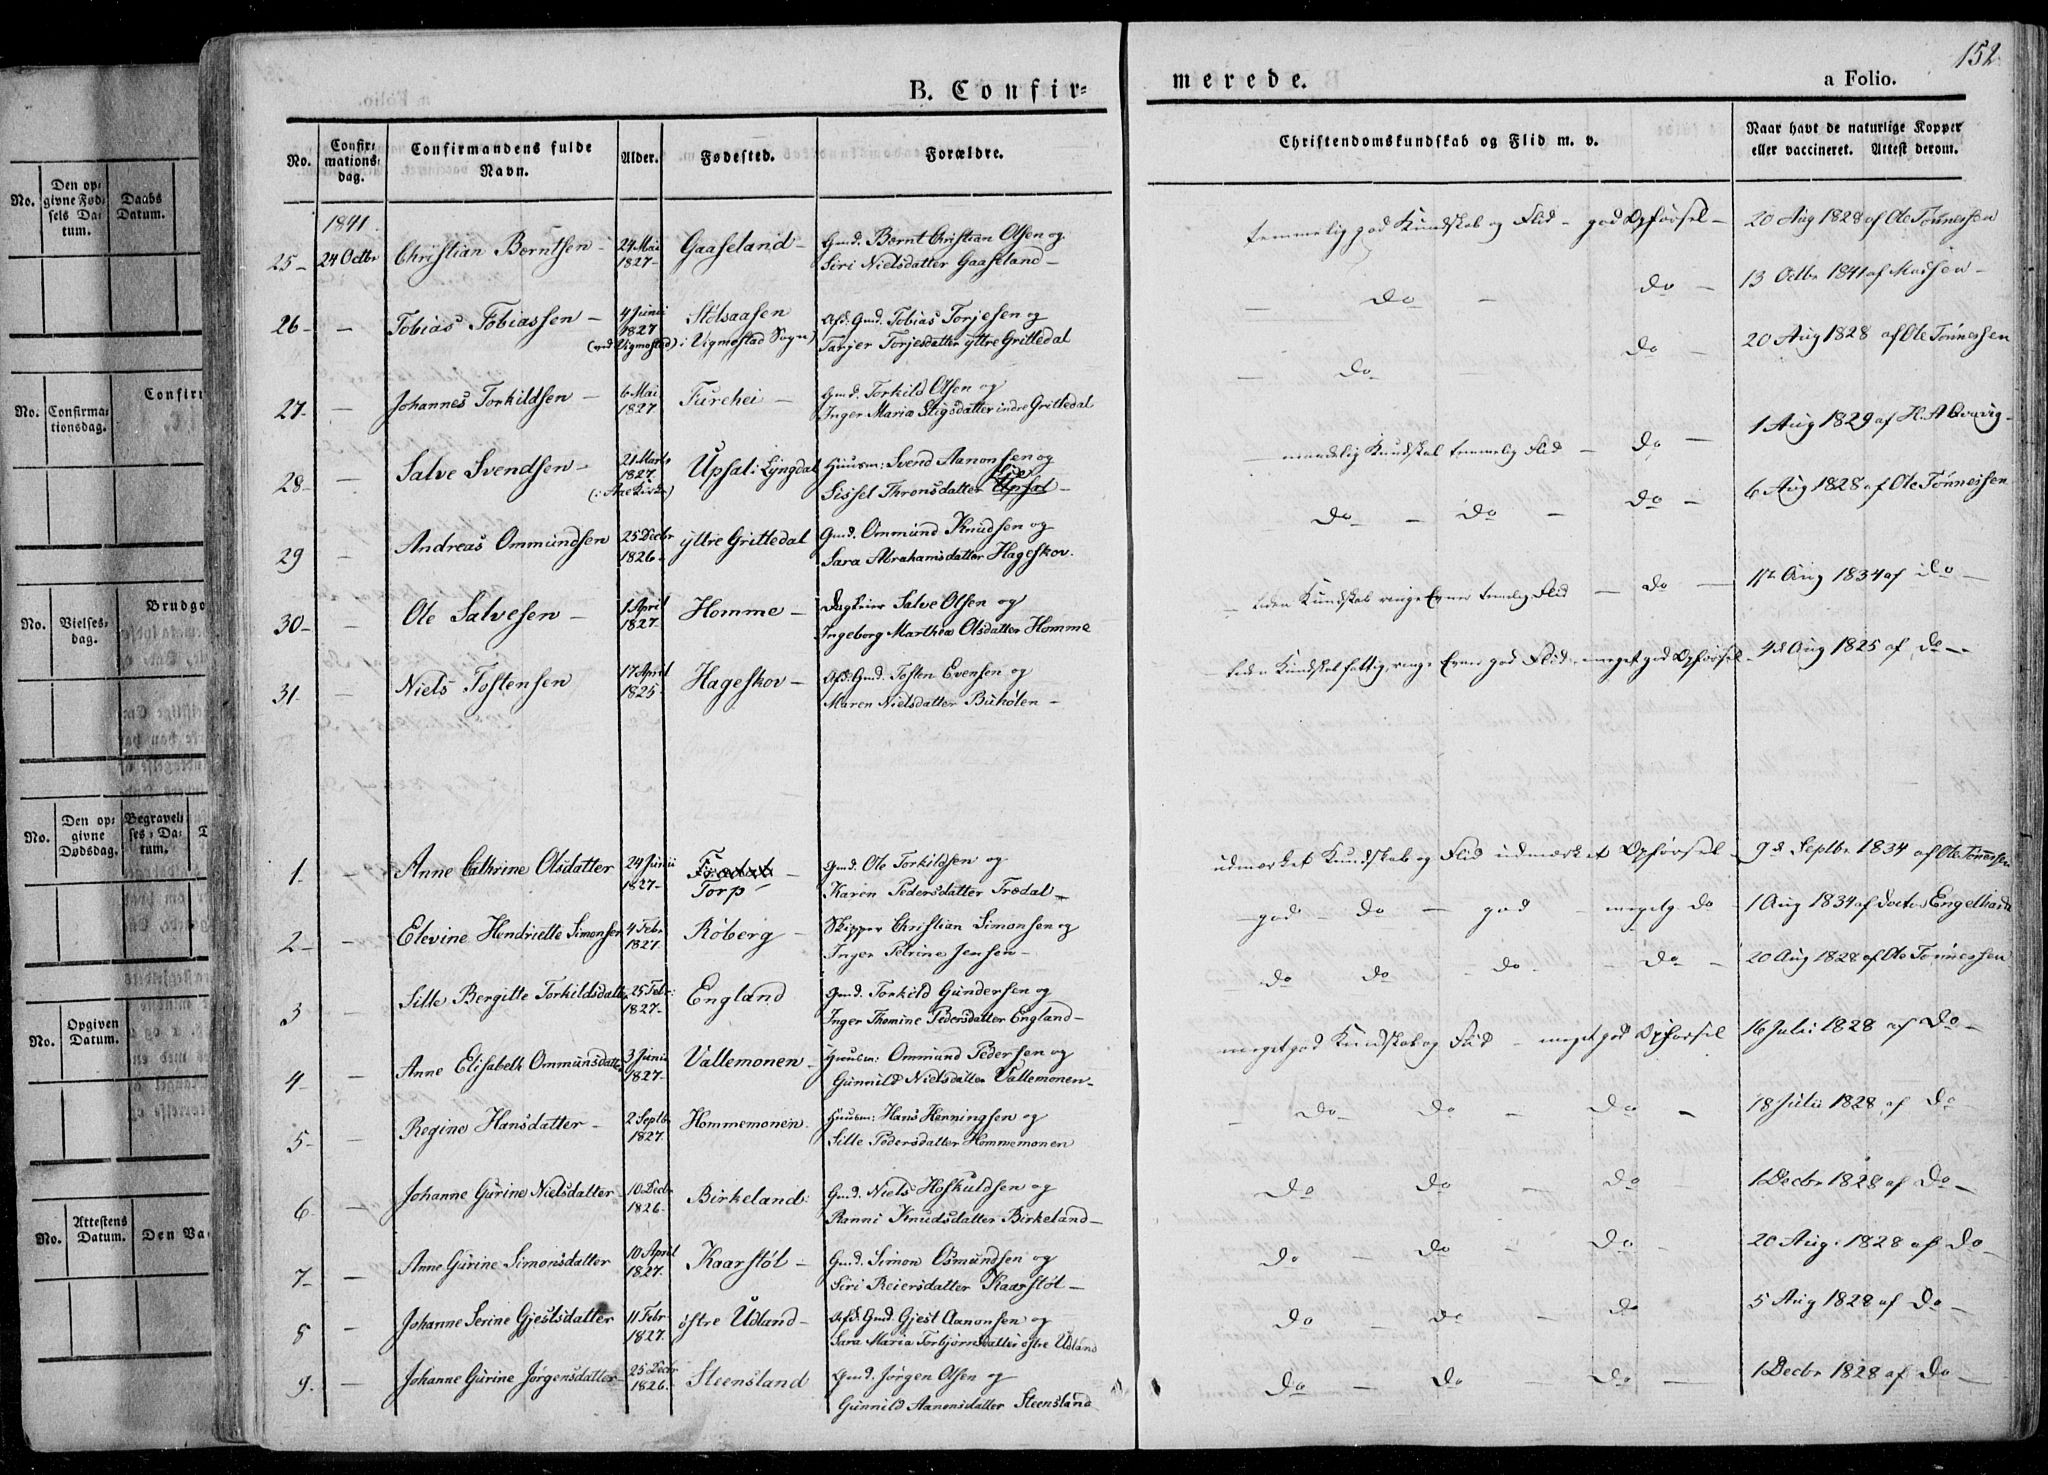 152
B. Confir=
merede.
a Folio.
No.
Confir=
mations=
dag.
Confirmandens fulde
Navn.
Alder.
Fødested.
Forældre.
Christendomskundskab og Flid m. v.
Naar havt de naturlige Kopper
eller vaccineret. Attest derom.
1841.
25- 24 Octbr Christian Berntsen - 24 Mai 1827- Gaaseland- Gmd. Bernt Christian Olsen og
Siri Nielsdatter Gaaseland-
temmelig god Kundskab og Flid - god Opførsel- 20 Aug 1828 af Ole Tønnessen
26- - Tobias Tobiassen - 4 Junii 1827 Stolsaasen Afd: Gmd. Tobias Torjesen og
(ved Vigmostad) i Vigmostad Sogn) Tarjer Torjesdatter yttre Grittedal
- do - do - 13 Octbr 1841 af
27- - Johannes Torkildsen - 6 Mai 1827 Furehei - Gmd. Torkild Olsen og
Inger Maria Stigsdatter indre Grittedal
- do - do - 20 Aug 1828 af Ole Tønnessen
28- - Salve Svendsen - 21 Marts 1827. Upsal i Lyngdal Huusm: Svend Aanonsen og
(i Aae Kirke) Sissel Thronsdatter
- maadelig Kundskab temmelig Flid - do - 1 Aug 1829 af H.
29 - Andreas Ommundsen 25 Decbr 1826- yttre Grittedal Gmd. Ommund Knudsen og
Sara Abrahamsdatter Hageskov.
do - do - do - 6 Aug 1828 af Ole Tønnessen
30- - Ole Salvesen - 1 April 1827- Homme - Salve Olsen og
Ingeborg Marthea Olsdatter Homme
- liden Kundskab ringe Evner temmelig Flid - do - Aug 1834 af do -
31- - Niels Tostensen 17 April 1825- Hageskov - Afd: Gmd. Tosten Evensen og
Maren Nielsdatter Bukølen -
- liden Kundskab fattig, ringe Evner god Flid, meget god Opførsel - 4d Aug 1825 af do -
1. - Anne Cathrine Olsdatter 24 Junii 1827- Trædal - Gmd. Ole Torkildsen og
Torp Karen Pedersdatter Trædal -
udmærket Kundskab og Flid udmærket Opførsel - 9d Septbr 1834 af Ole Tønnessen
2- - Elevine Hendriette Simonsen 4 Febr 1827. Røberg - Skipper Christian Simonsen og
Inger Petrine Jensen -
- god - do - god - meget g. do 1 Aug 1834 af Doctor Engelhardt
3 - Sille Bergitte Torkildsdatter 25 Febr: 1827- England Gmd. Torkild Gundersen og
Inger Thomine Pedersdatter England -
do do - do - do - 20 Aug 1828 af Ole Tønnessen
4 - Anne Elisabeth Ommunsdatter 3 Junii 1827- Vallemonen - Huusm: Ommund Pedersen og
Gunnild Nielsdatter Vallemonen-
meget god Kundskab og Flid - meget god Opførsel 16 Juli 1828 af Do -
5- - Regine Hansdatter - 2 Septbr 1827. Hommemonen Huusm: Hans Henningsen og
Sille Pedersdatter Hommemonen
- Do - Do - Do - 18 Julii 1828 af Do -
6 - Johanne Gurine Nielsdatter 10 Decbr 1826- Birkeland Gmd. Niels Hoskuldsen og
Ranni Knudsdatter Birkeland -
Do - Do - Do - 1 Decbr 1828 af Do -
7- - Anne Gurine Simonsdatter 10 April 1827. Kaarstøl - Gmd. Simon Osmundsen og
Siri Reiersdatter Kaarstøl -
Do - Do - Do - 20 Aug. 1828 af Do -
8 - Johanne Serine Gjestsdatter 11 Febr 1827- østre Udland - Afd. Gmd. Gjest Aanonsen og
Sara Maria Torbjørnsdatter østre Udland
Do - do - Do 5 Aug 1828 af Do -
9. - Johanne Gurine Jørgensdatter 25 Decbr 1826- Steensland Gmd. Jørgen Olsen og
Gunnild Aanonsdatter Steensland
Do - Do - Do - 1 Decbr 1828 af Do -
No.
Den op=
givne Fød=
sels Da=
tum.
Daabs
Datum.
No.
Confirma=
tionsdag.
Confirm
No.
Vielses=
dag.
Brudgo
No.
Den op=
givne
Dødsdag.
Begravel=
ses=Da=
tum.
No.
Opgiven
Datum.
No.
Attestens
Datum.
Den Va